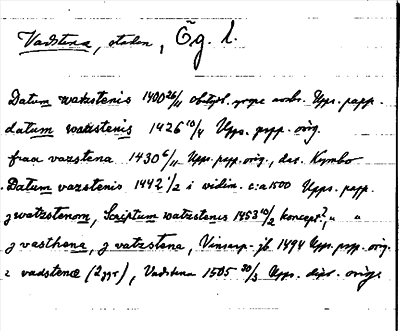 Vadstena, staden, Ög. l.
Datum watzstenis 1400 26/11 obetygl. yngre avskr. Upps. papp.
datum watistenis 1426 10/4 Upps. papp. orig.
fraa vazstena 1430 6/11 Upps. papp. orig., das. Kymbo
Datum vazstenis 1442 1/2 i vidim. c:a 1500 Upps. papp.
j watzstenom, Scriptum watzstenis 1453 10/2 koncept?, " "
j vasthena, j vatzstena, Vinsarp. jb 1494 Upps. papp. orig.
i vadstenæ (2 ggr), Vadstena 1505 30/3 Upps. dipl. orig.